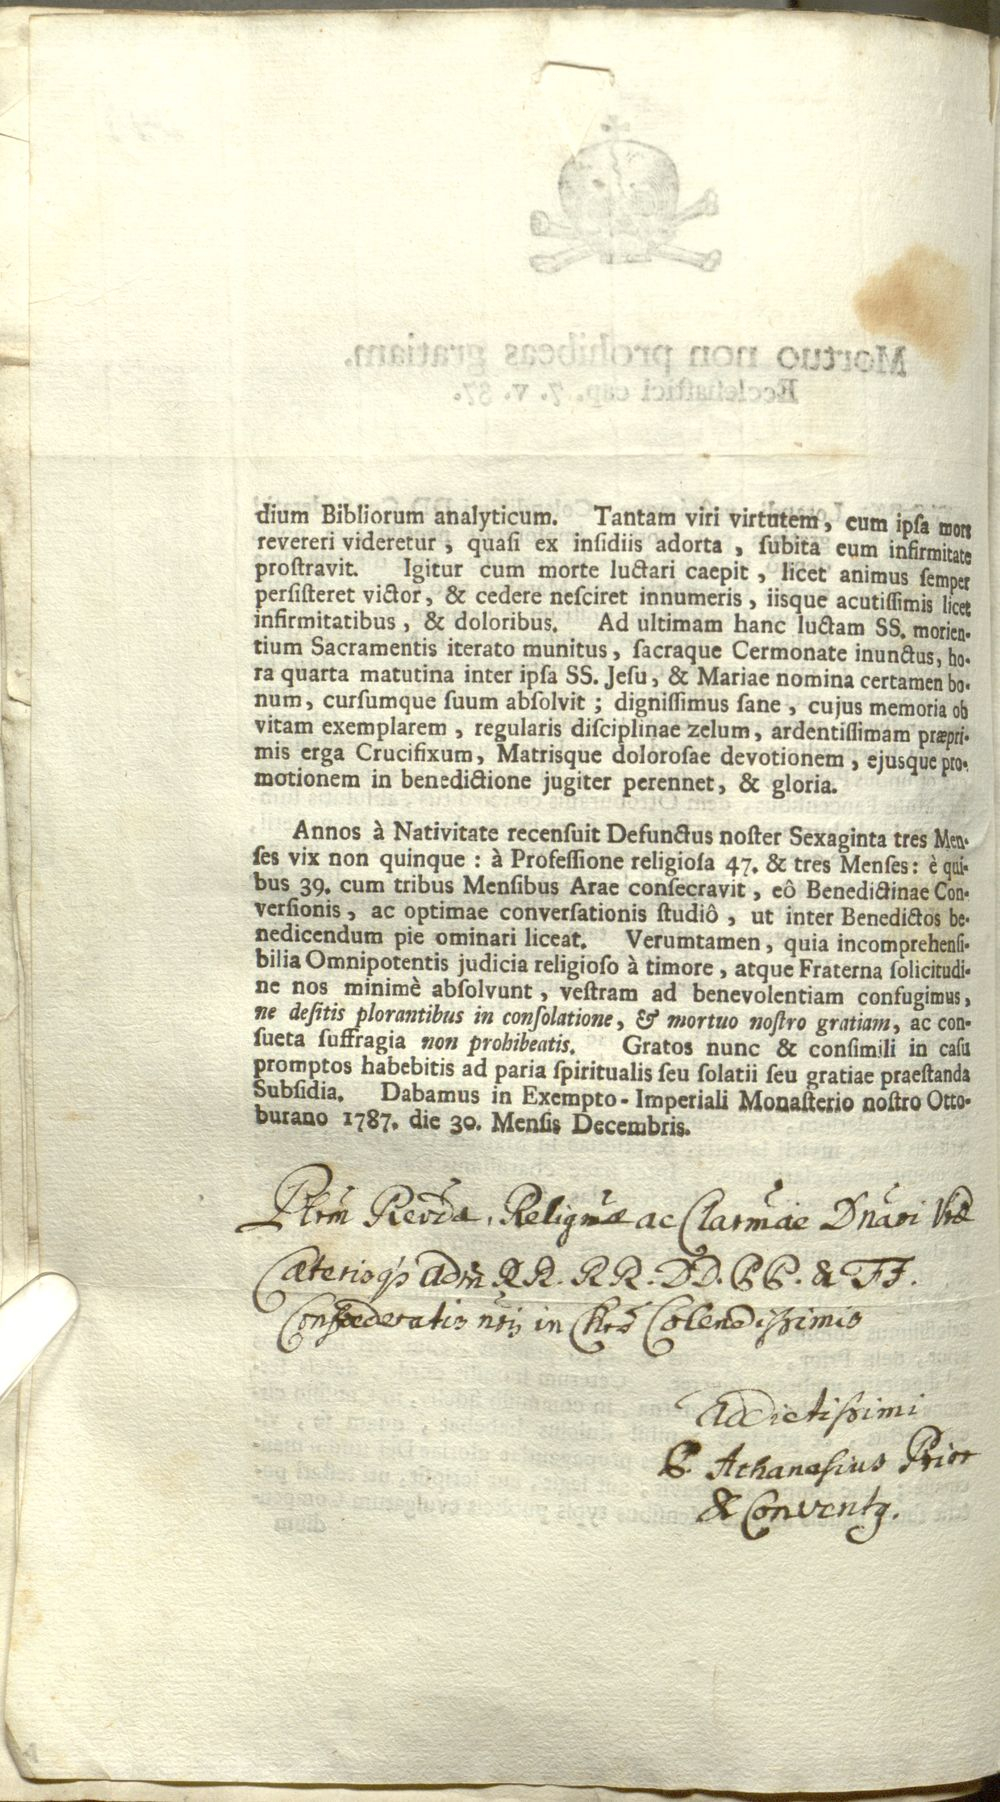 dium Bibliorum analyticum. Tantam viri virtutem, cum ipſa mors
revereri videretur, quaſi ex inſidiis adorta, ſubita eum infirmitate
proſtravit. Igitur cum morte luctari caepit, licet animus ſemper
perſiſteret victor, & cedere neſciret innumeris, iisque acutiſſimis licet
infirmitatibus, & doloribus. Ad ultimam hanc luctam SS. morien-
tium Sacramentis iterato munitus, ſacraque Cermonate inunctus, ho-
ra quarta matutina inter ipſa SS. Jeſu, & Mariae nomina certamen bo-
num, curſumque ſuum abſolvit; digniſſimus ſane, cujus memoria ob
vitam exemplarem, regularis diſciplinae zelum, ardentiſſimam præpri-
mis erga Crucifixum, Matrisque doloroſae devotionem, ejusque pro-
motionem in benedictione jugiter perennet, & gloria.
Annos à Nativitate recenſuit Defunctus noſter Sexaginta tres Men-
ſes vix non quinque: à Profeſſione religioſa 47. & tres Menſes: è qui-
bus 39. cum tribus Menſibus Arae conſecravit, eô Benedictinae Con-
verſionis, ac optimae converſationis ſtudiô, ut inter Benedictos be-
nedicendum pie ominari liceat. Verumtamen, quia incomprehenſi-
bilia Omnipotentis judicia religioſo à timore, atque Fraterna ſolicitudi-
ne nos minimè abſolvunt, veſtram ad benevolentiam confugimus,
ne deſitis plorantibus in conſolatione, & mortuo noſtro gratiam, ac con-
ſueta ſuffragia non prohibeatis. Gratos nunc & conſimili in caſu
promptos habebitis ad paria ſpiritualis ſeu ſolatii ſeu gratiae praeſtanda
Subſidia. Dabamus in Exempto-Imperiali Monaſterio noſtro Otto-
burano 1787. die 30. Menſis Decembris.
Plrm̄ Revd̄æ, Religm̄æ ac Clarm̄ae Dn̄aõi Vrǣ
Cæterisq́s adm̄ RR. RR. DD. PP. & FF.
Confœderatis nr̄is in Chr̄o Colendiſsimis
Addictiſsimi
P. Athanaſius Prior
& Convent9.
Mortuo non prohibeas gratiam.
Eccleſiaſtici cap. 7. v. 37.